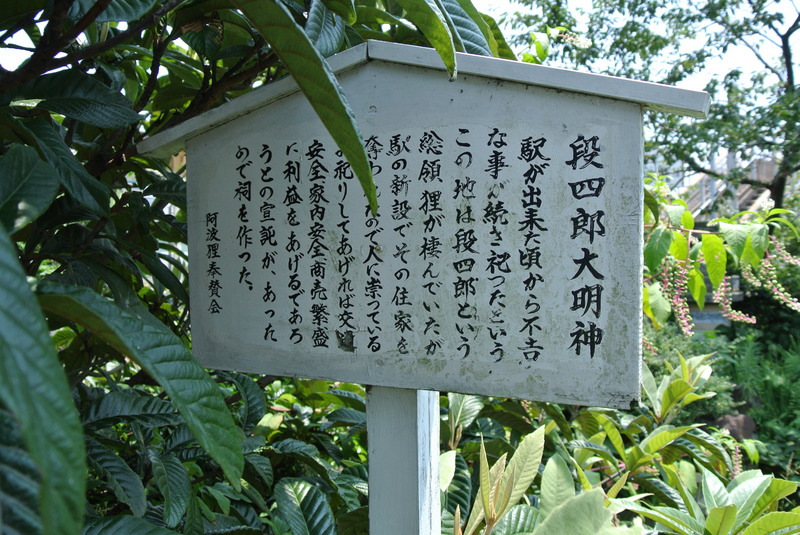 段四郎大明神
駅が出来た頃から不吉
な事が続き祀ったという
この地は段四郎という
総領狸が棲んでいたが
駅の新設でその住家を
奪われたので人に祟っている
祀りしてあげれば交通
安全家内安全商売繁盛
に利益をあげるであろ
うとの宣託が、あった
ので祠を作った。
阿波狸奉賛会